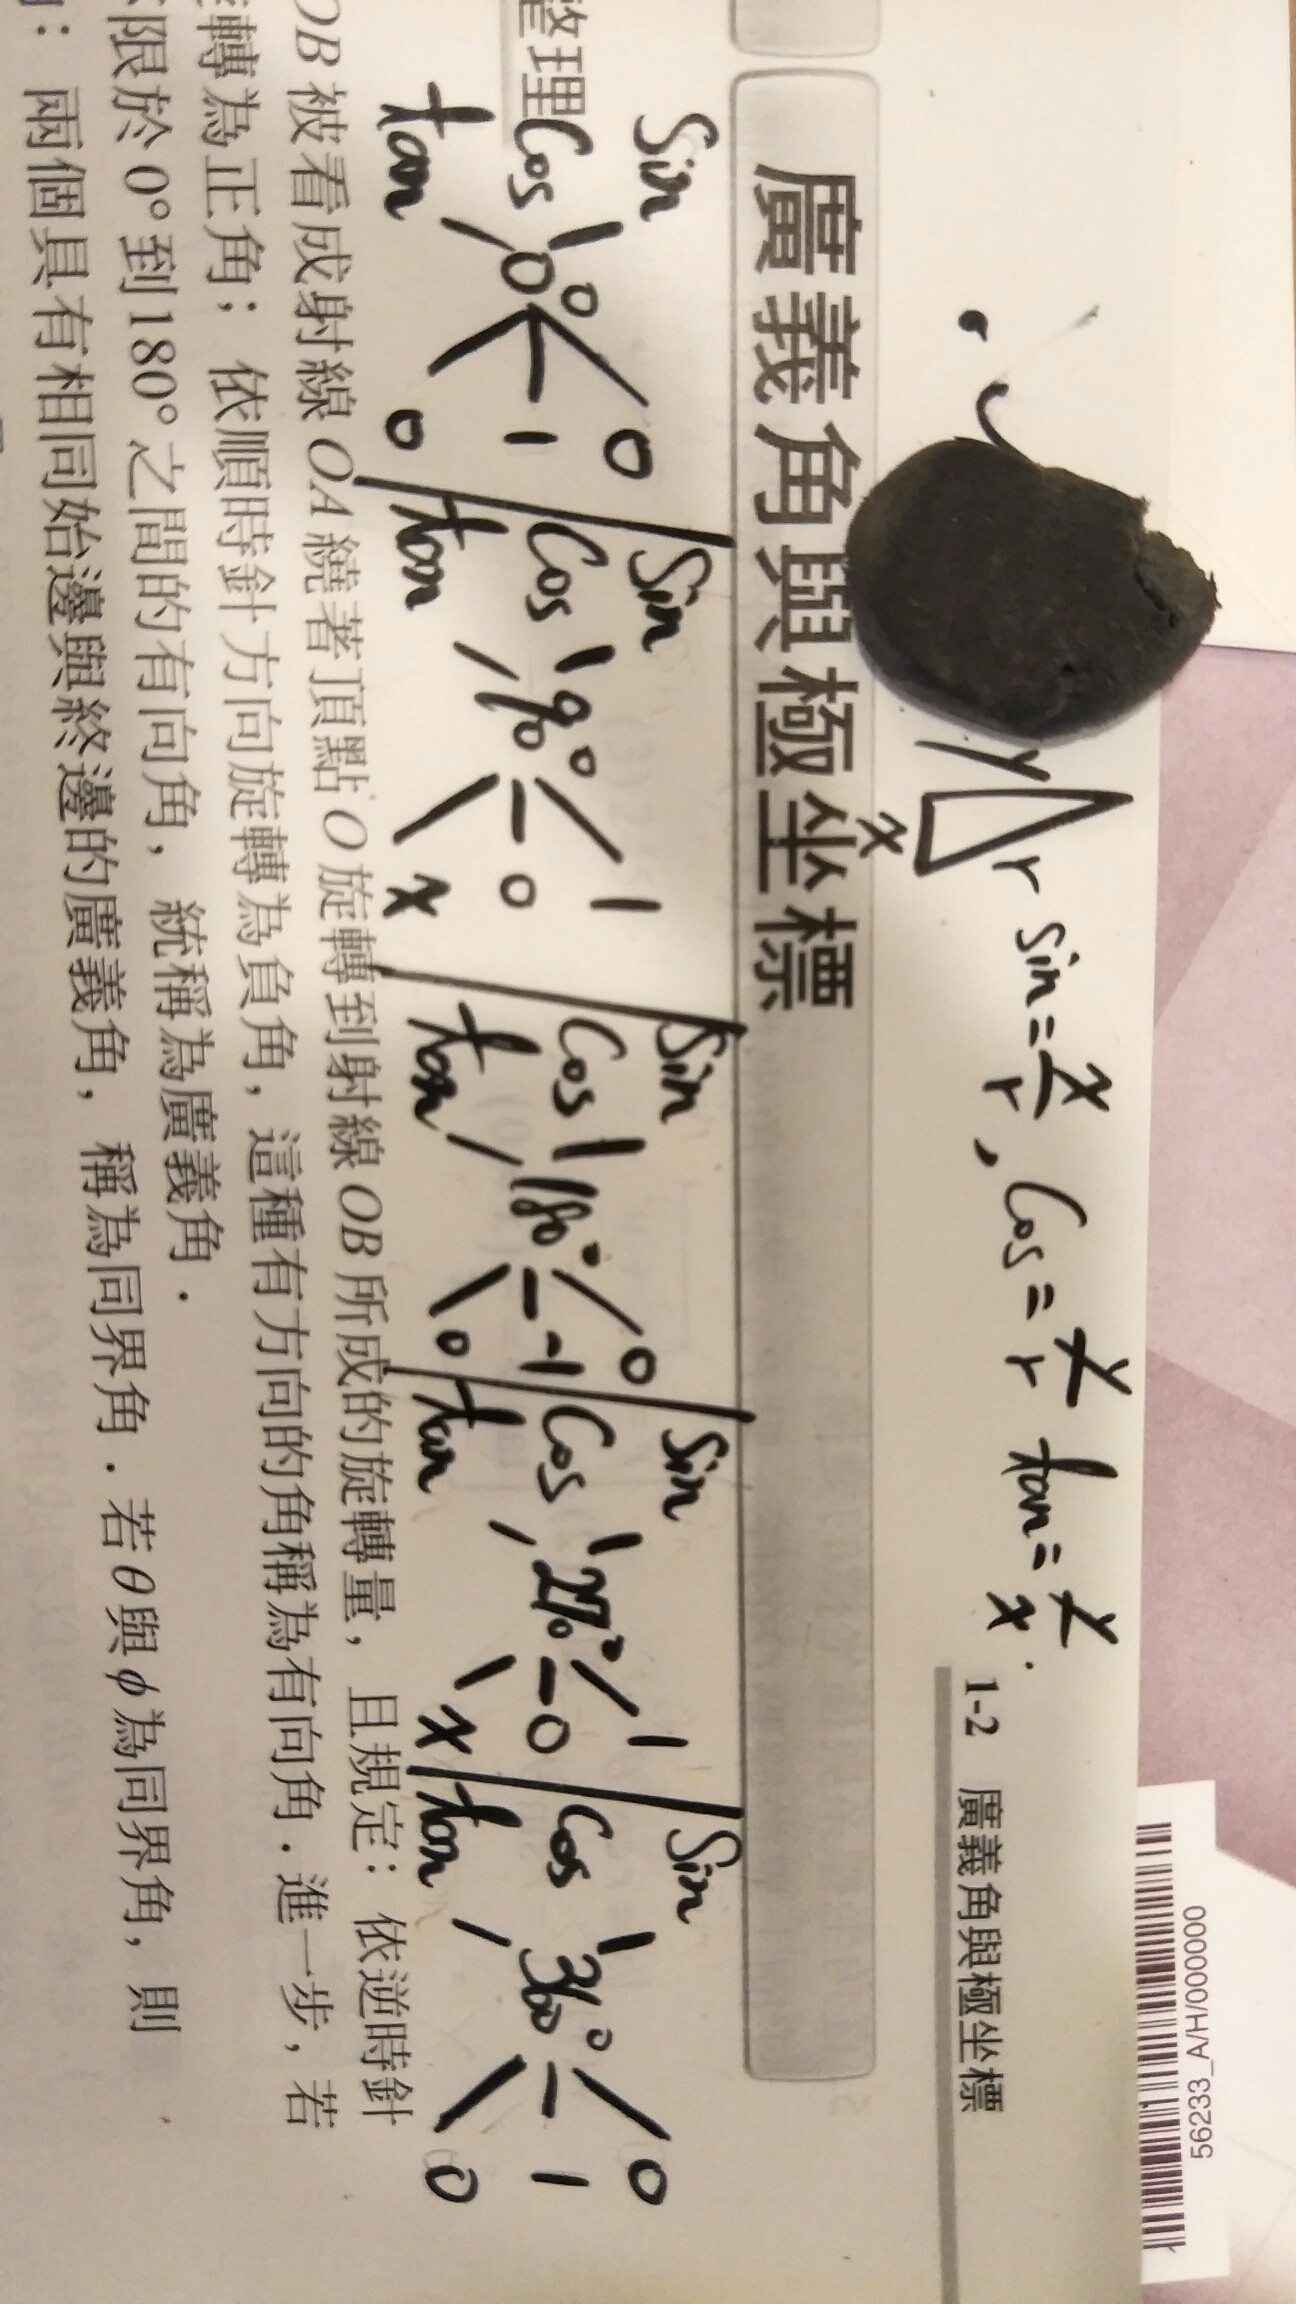 y x r sin = x/r , Cos = y/r tan = y/x .
1-2 廣義角與極坐標
56233_A/H/000000
廣義角與極坐標
整理
Sin 0 Sin 1 Sin 0 Sin 1 Sin 0
Cos 0° 1 Cos 90° 0 Cos 180° -1 Cos 270° 0 Cos 360° 1
tan 0 tan x tan 0 tan x tan 0
OB 被看成射線 OA 繞著頂點 O 旋轉到射線 OB 所成的旋轉量，且規定：依逆時針
旋轉為正角；依順時針方向旋轉為負角，這種有方向的角稱為有向角．進一步，若
不限於 0° 到 180° 之間的有向角，統稱為廣義角．
：兩個具有相同始邊與終邊的廣義角，稱為同界角．若 θ 與 ϕ 為同界角，則